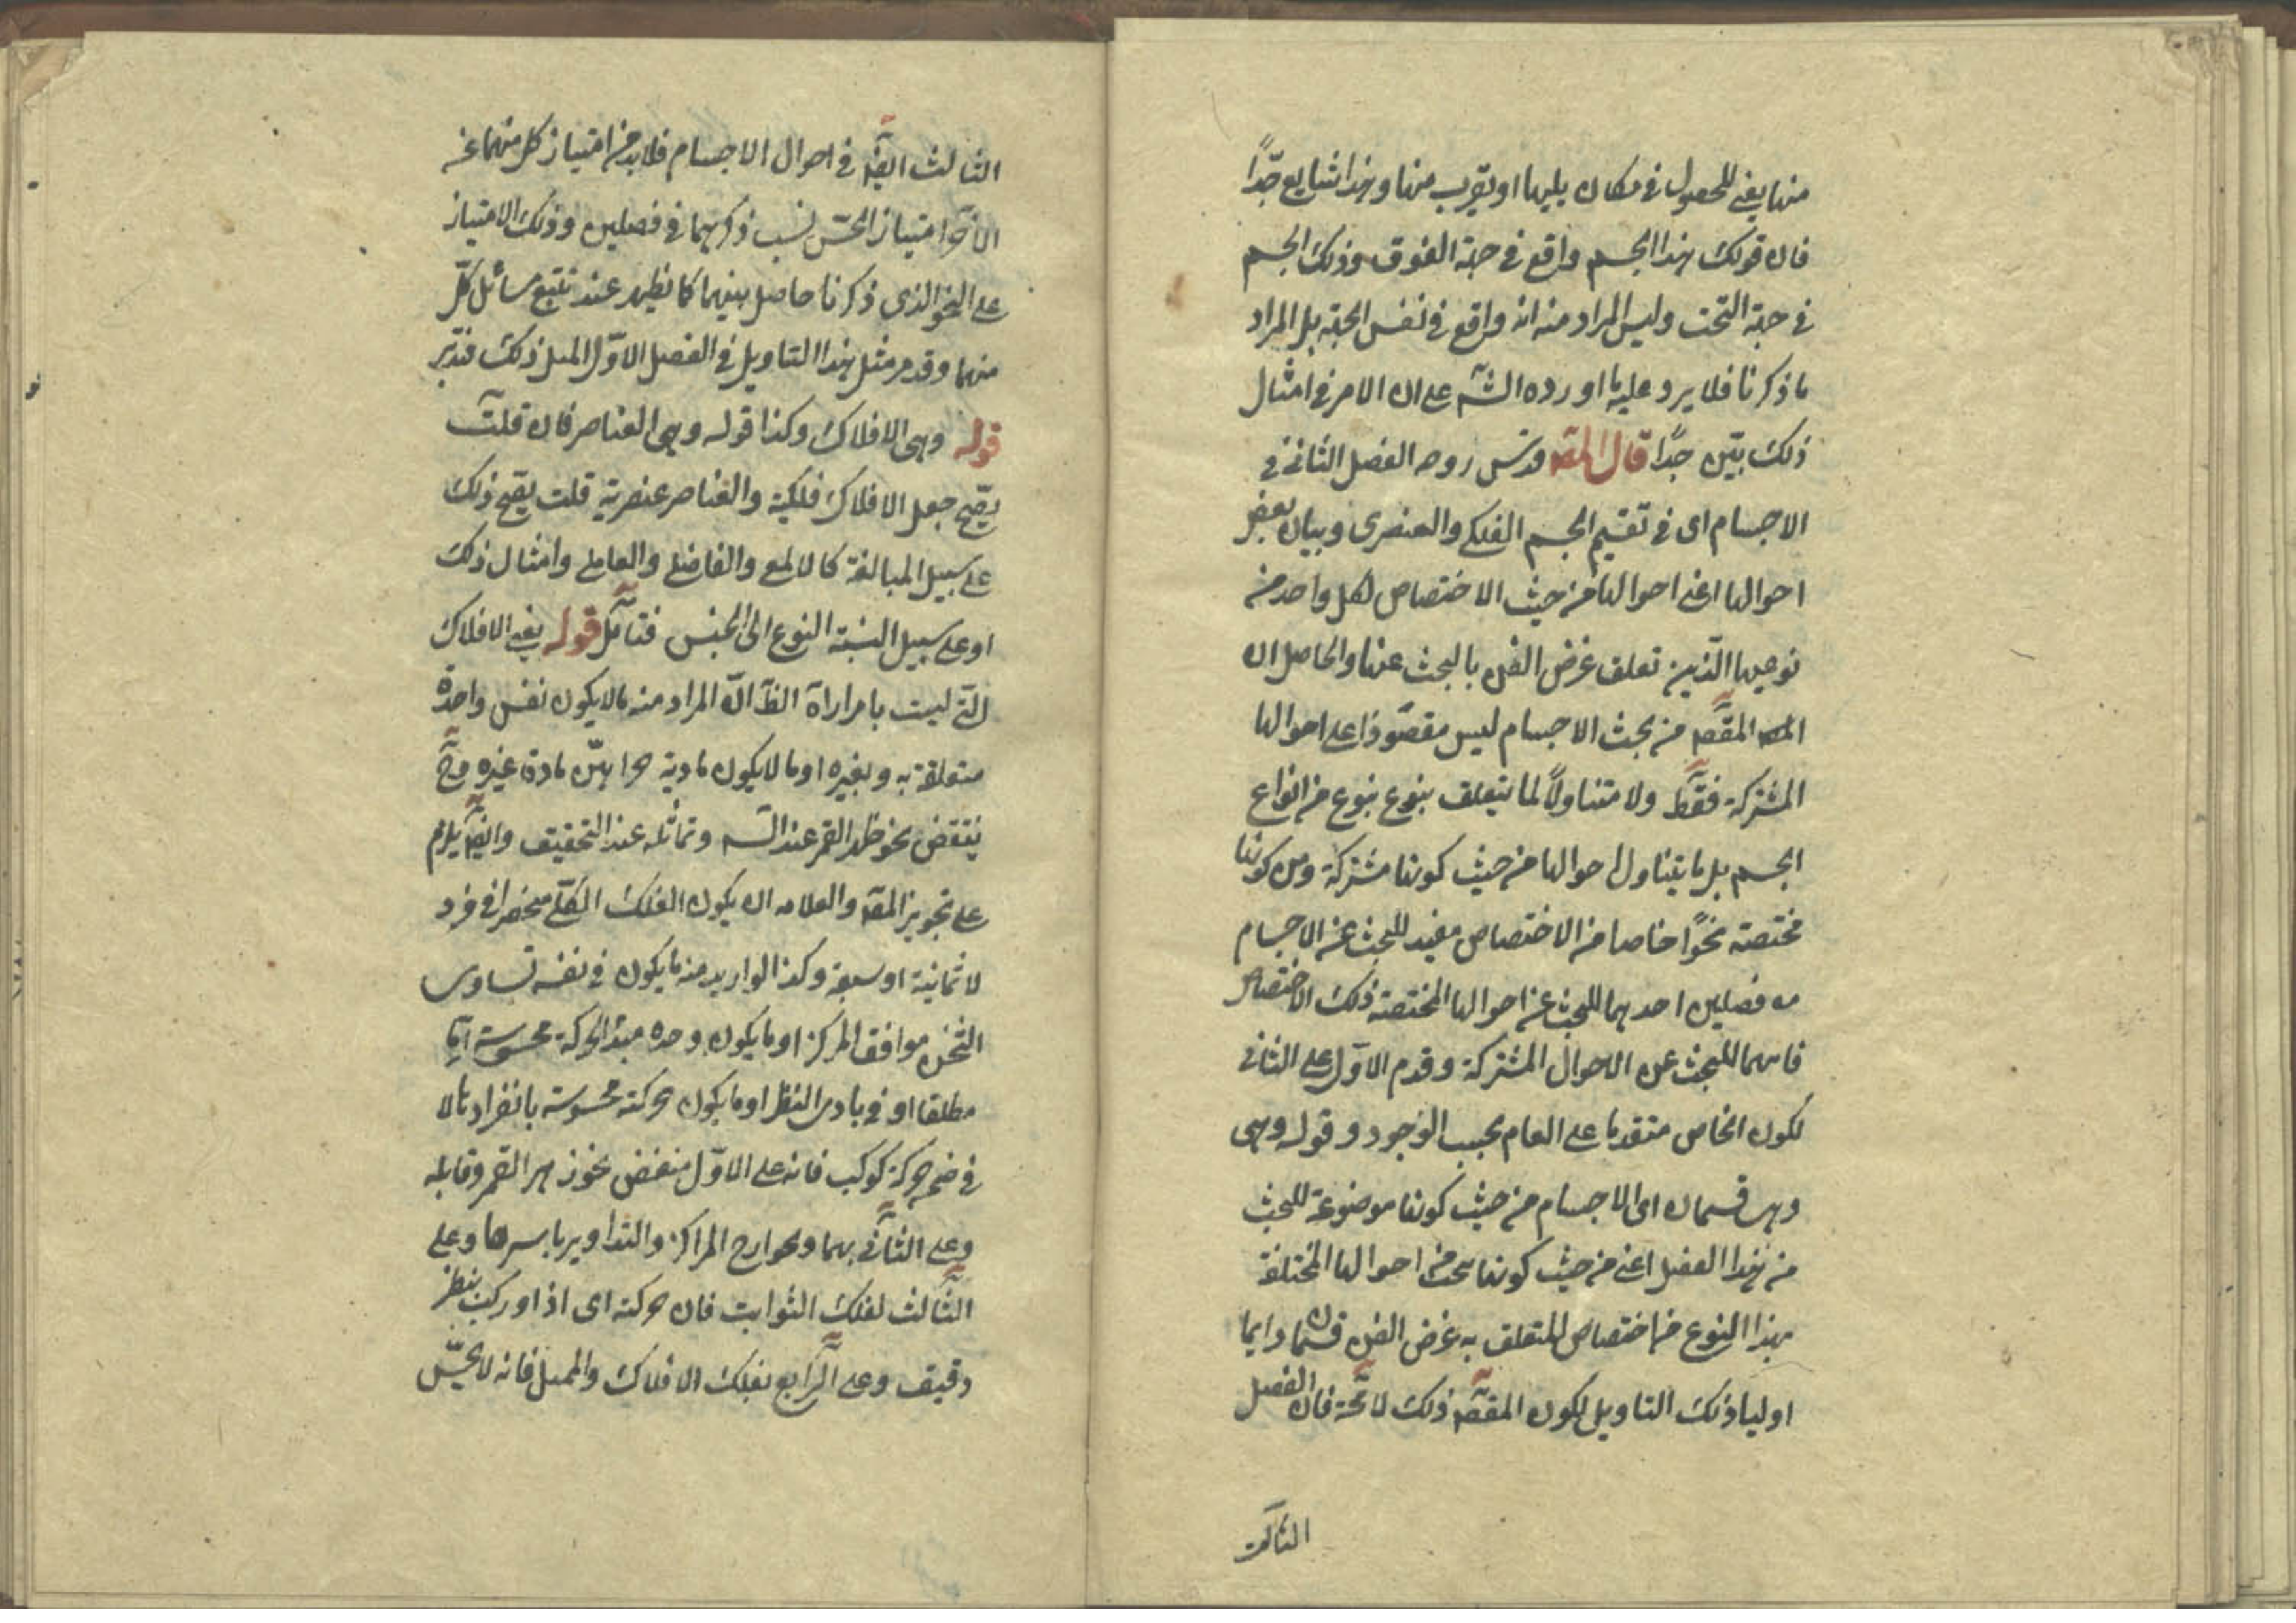 منها يعنى للحصول فى مكان يليها او يقرب منها وهذا شايع جدّاً
فان قولك هذا الجسم واقع فى جهة الفوق وذلك الجسم
فى جهة التحت وليس المراد منه انه واقع فى نفس الجهة بل المراد
ما ذكرنا فلا يرد عليه ما اورده الشّم على ان الامر فى امثال
ذلك بيّن جدًا قال المصَ قدس روحه الفصل الثانى فى
الاجسام اى فى تقسيم الجسم الفلكى والعنصرى وبيان بعض
احوالها اعنى احوالها من حيث الاختصاص لكل واحد من
نوعيها الّذين تعلق غرض الفن بالبحث عنها والحاصل ان
المقصَ من بحث الاجسام ليس مقصورا على احوالها
المشتركة فقط ولا متناولاً لما يتعلق بنوع نوع من انواع
الجسم بل ما يتناول احوالها من حيث كونها مشتركة ومن كونها
مختصة نحوًا خاصا من الاختصاص مفيد للبحث عن الاجسام
فصلين احدهما للبحث عن احوالها المختصة ذلك الاختصاص
للبحث عن الاحوال المشتركة وقدم الاوّل على الثانى
لكون الخاص متقدما على العام بحسب الوجود وقوله وهى
وهى قسمان اى الاجسام من حيث كونها موضوعة للبحث
من هذا الفصل اعنى من حيث كونها احوالها المختلفة
بهذا النوع من اختصاص المتعلق به غرض الفن قسمان وانما
اولنا ذلك التاويل لكون المقصَ ذلك لا فان الفصل
الثالث
الثالث ايضَ فى احوال الاجسام فلا بد من امتياز كل منهما عن
الآخر امتياز نسب ذكرهما فى فصلين وذلك الامتياز
على النحو الذى ذكرنا حاصل بينهما كما يظهر عند تتبع مسائل كلّ
منهما وقد مر مثل هذا التاويل فى الفصل الاوّل ذلك فتدبّر
قوله وهى الافلاك وكذا قوله وهى العناصر فان قلت
يصّح جعل الافلاك فلكية والعناصر عنصرية قلت يصّح ذلك
على سبيل المبالغة كالالمعى والفاضلى والعاملى وامثال ذلك
او على سبيل النسبة النوع الى الجنس فتأمّل قوله يعنى الافلاك
التى ليست المراد منه ما لا يكون نفس واحدة
متعلقة به وبغيره او ما لا يكون مادية مادة غيره وحَ
ينتقض بنحو القمر عند الشَم وتماثله عند التحقيق وايضَ يلزم
على تجويز المصَ والعلامه ان يكون الفلك الكلّى منحصرا فى فرد
لا ثمانية او سبعة وكذا لو اريد منه ما يكون فى نفسه تساوى
الثخن موافق المركز او ما يكون وحده مبدأ لحركة محسوسة امّا
مطلقا او فى بادى النظر او ما يكون حركته محسوسة بانفراد ما لا
فى ضمن حركة كوكب فانه على الاوّل منقض القمر وقابله
وعلى الثانى بهما وبخوارج المراكز والتداوير باسرها وعلى
الثالث لفلك الثوابت فان حركته اى اذا اوركت بنظر
دقيق وعلى الرّابع بفلك الافلاك والممثل فانه لا يحسّ